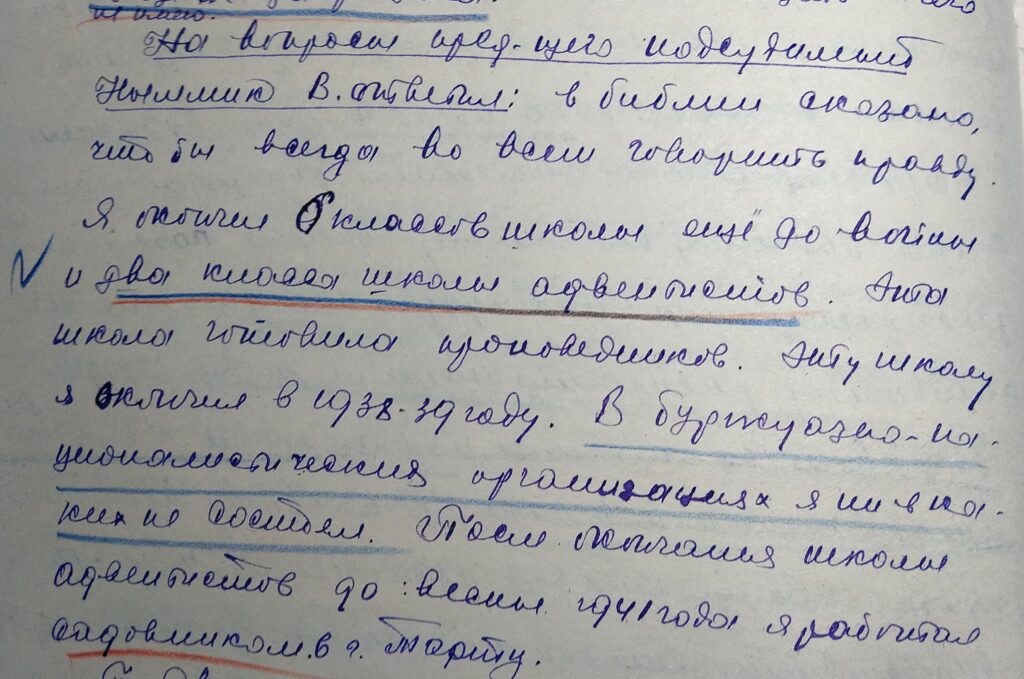 не имею.
На вопросы пред-щего подсудимый
Ныммик В. ответил: в библии сказано,
что бы всегда во всем говорить правду.
Я окончил 6 классов школы ещё до войны
и два класса школы адвентистов. Эта
школа готовила проповедников. Эту школу
я окончил в 1938-39 году. В буржуазно-на-
ционалистических организациях я ни в ка-
ких не состоял. После окончания школы
адвентистов до весны 1941 года я работал
садовником в г. Тарту.